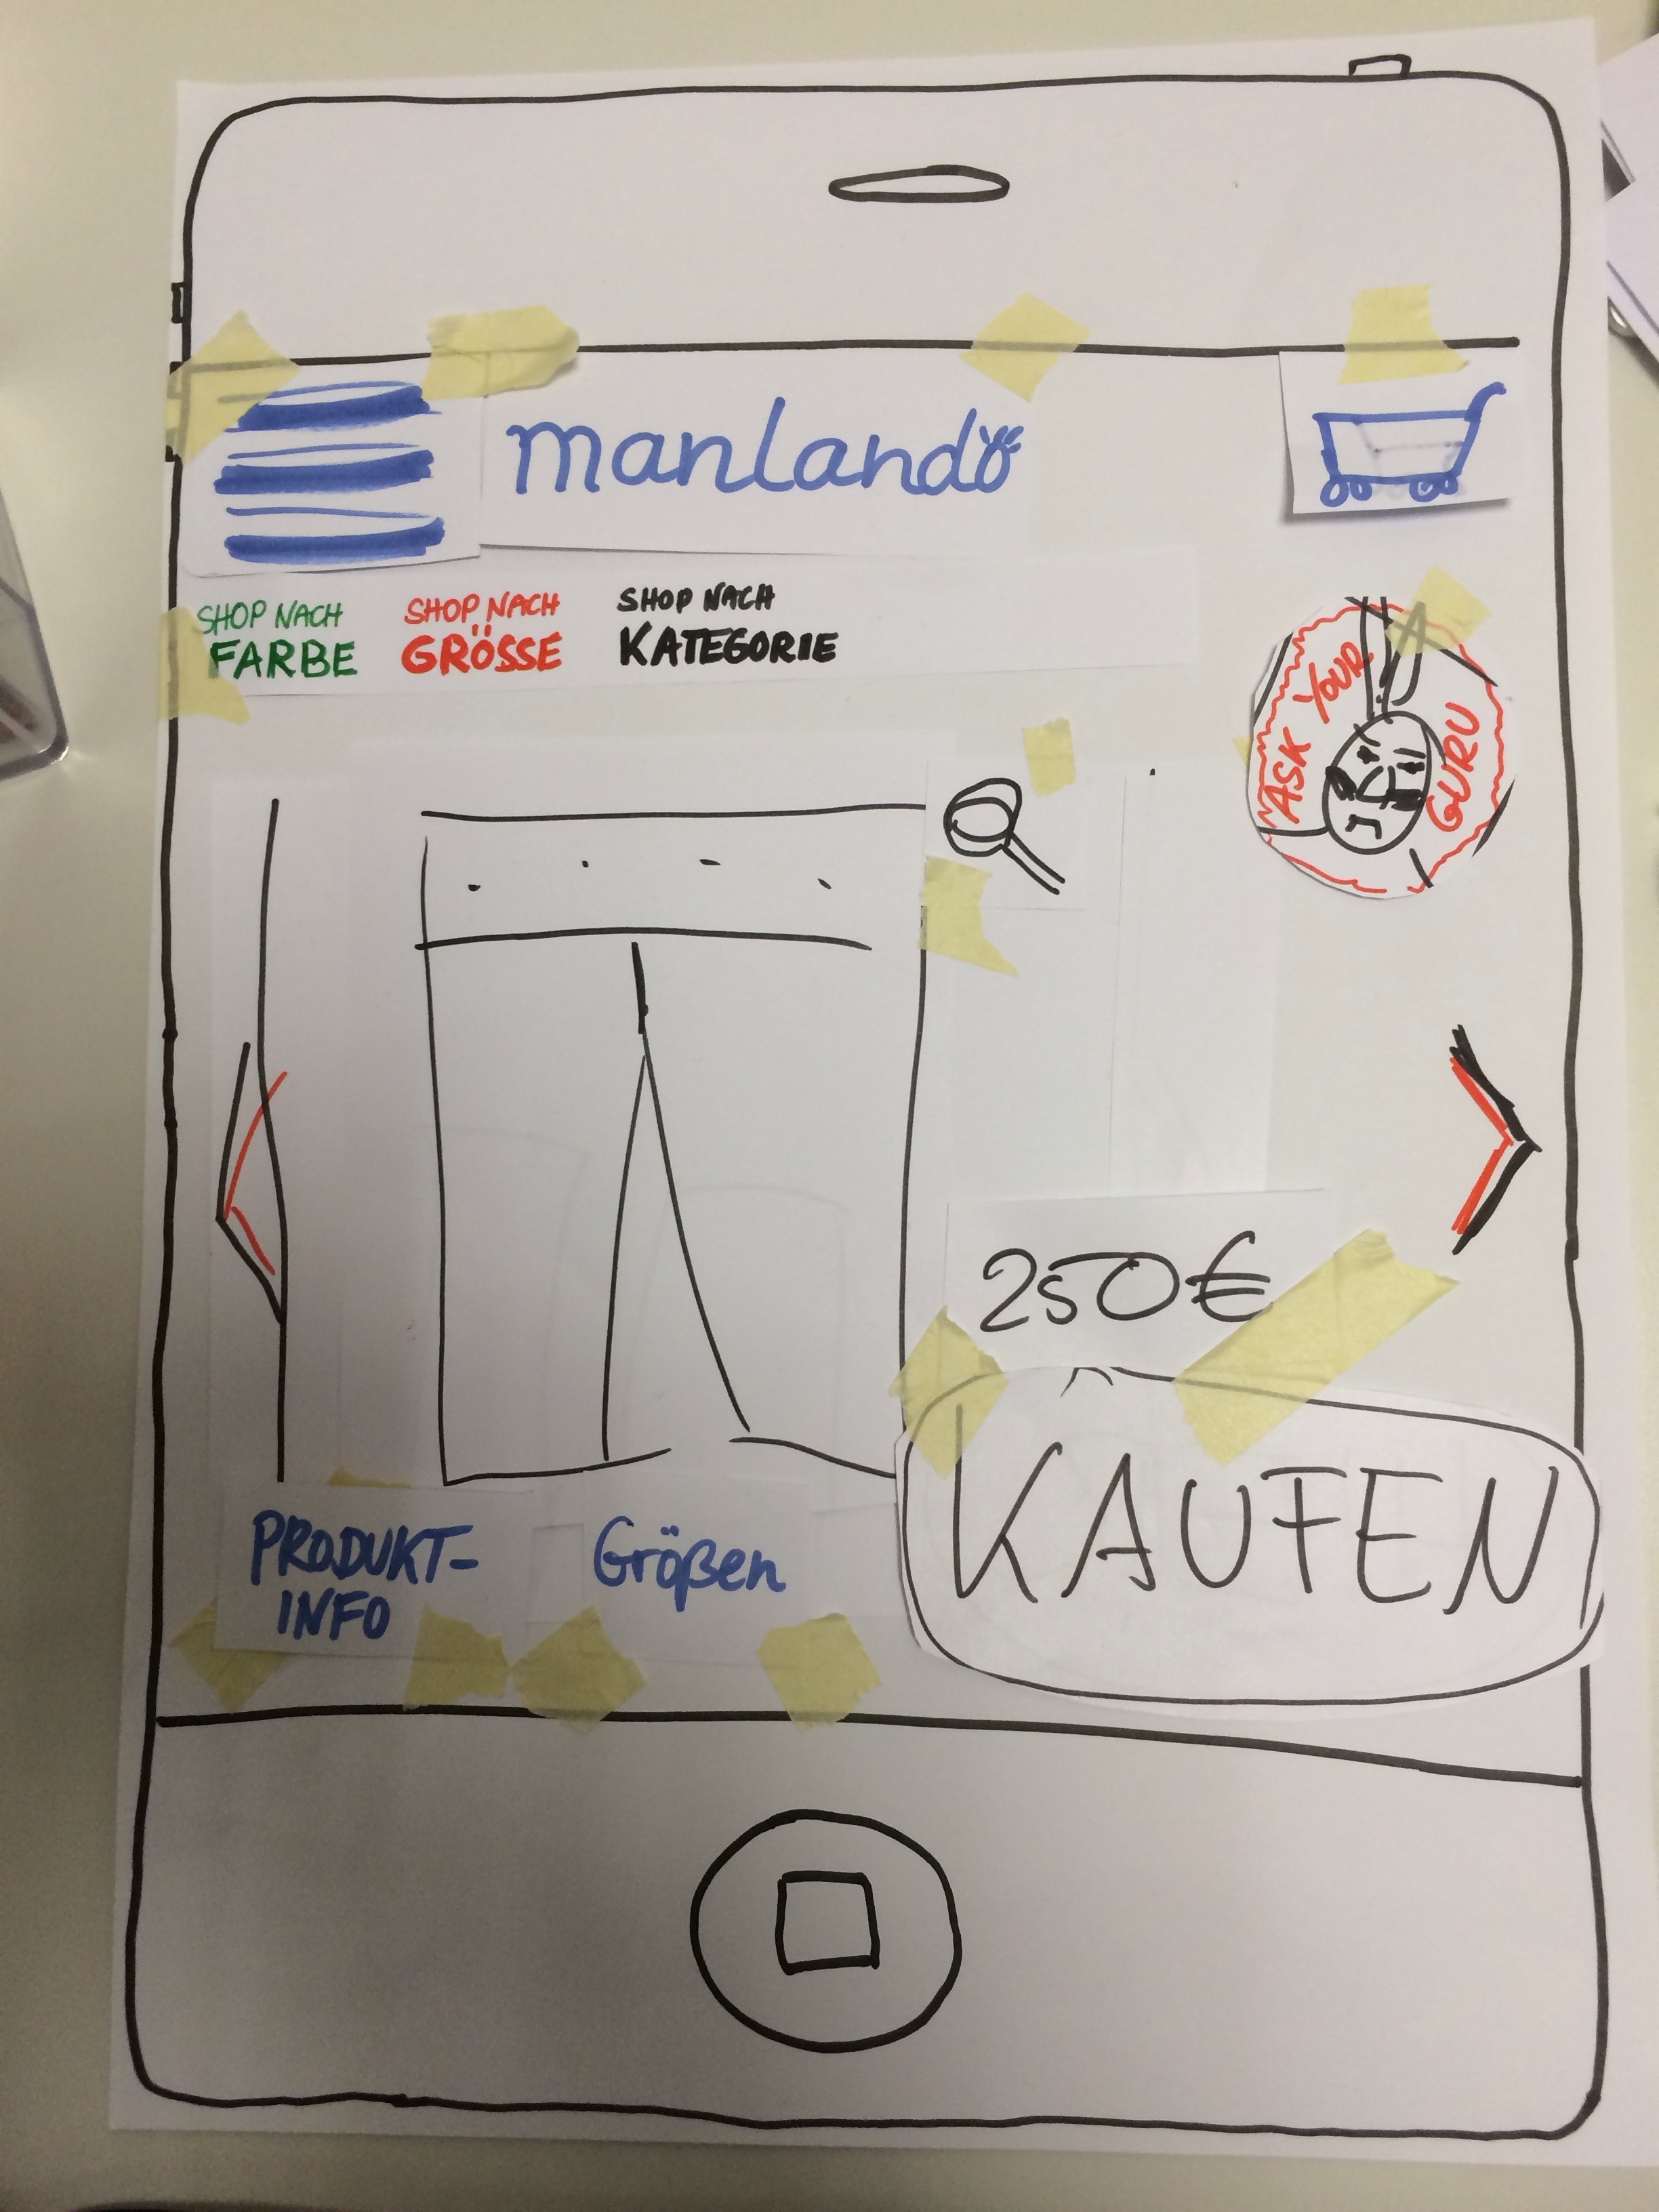 manlando
SHOP NACH
FARBE
SHOP NACH
GRÖSSE
SHOP NACH
KATEGORIE
ASK YOUR
GURU
250€
KAUFEN
PRODUKT-
INFO
Größen